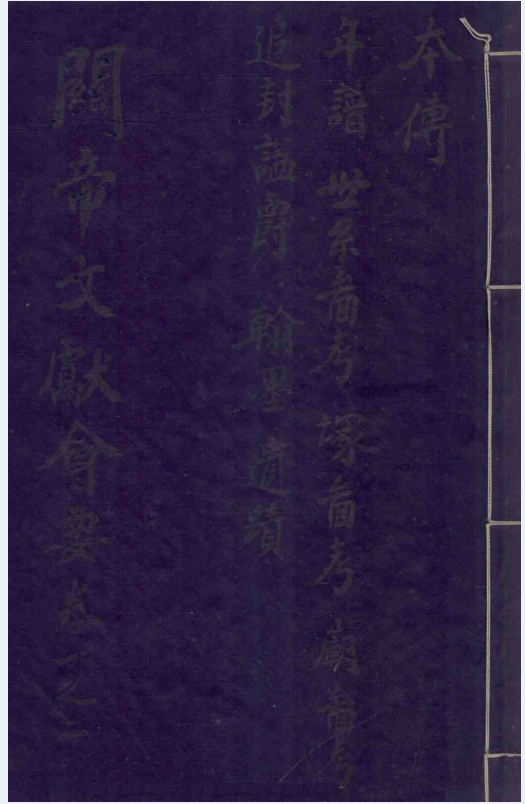 本傳
年譜 世系啚考 塚啚考 廟啚考
追封諡爵 翰墨 遺蹟
關帝文獻會要 卷一之二